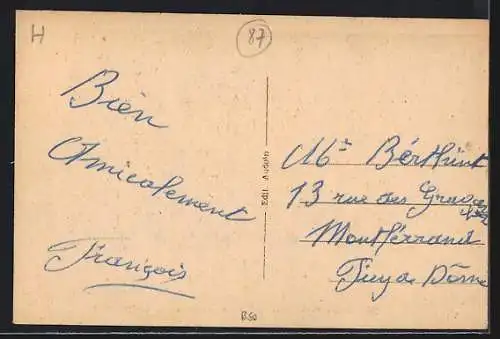 H
87
Bien
Amicalement
François
Edit. Audoin
Mr Berthunt
13 rue des Gravas
Montferrand
Puy de Dôme
B50